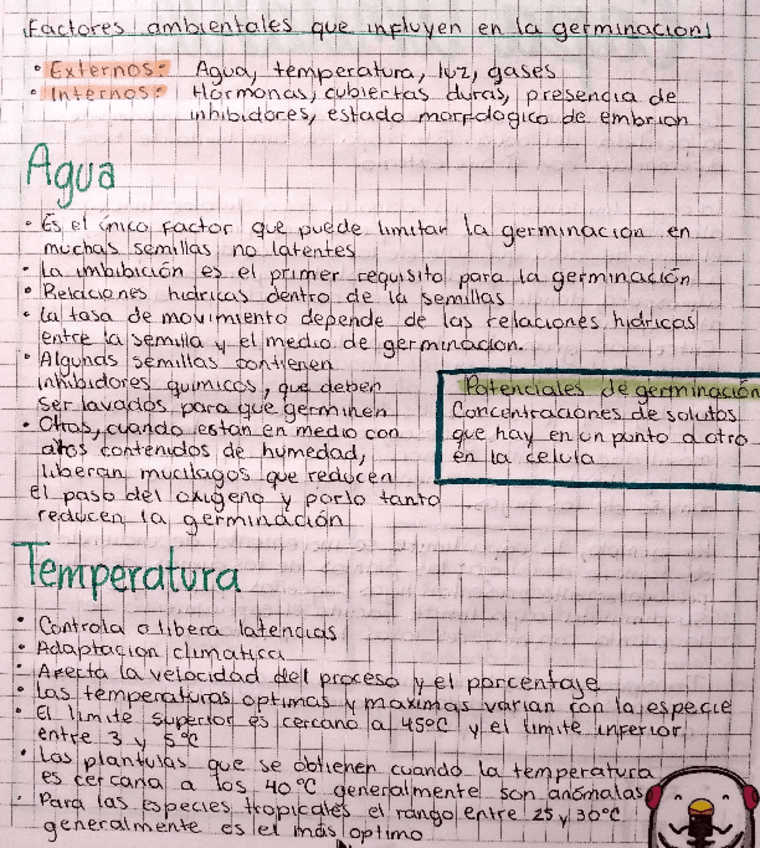 Factores ambientales que influyen en la germinacion
• Externos: Agua, temperatura, luz, gases
• Internos: Hormonas, cubiertas duras, presencia de
inhibidores, estado morfologico de embrion
Agua
• Es el único factor que puede limitar la germinacion en
muchas semillas no latentes
• La imbibición es el primer requisito para la germinación
• Relaciones hidricas dentro de la semillas
• La tasa de movimiento depende de las relaciones hidricas
entre la semilla y el medio de germinacion.
• Algunas semillas contienen
inhibidores quimicos, que deben
ser lavados para que germinen
• Otras, cuando estan en medio con
altos contenidos de humedad,
liberan mucilagos que reducen
el paso del oxigeno y porlo tanto
reducen la germinación
Potenciales de germinación
Concentraciones de solutos
que hay en un punto a otro
en la celula
Temperatura
• Controla o libera latencias
• Adaptacion climatica
• Afecta la velocidad del proceso y el porcentaje
• Las temperaturas optimas y maximas varian con la especie
• El limite superior es cercano a 45°C y el limite inferior
entre 3 y 5°C
• Las plantulas que se obtienen cuando la temperatura
es cercana a los 40°C generalmente son anómalas
• Para las especies tropicales el rango entre 25 y 30°C
generalmente es el más optimo